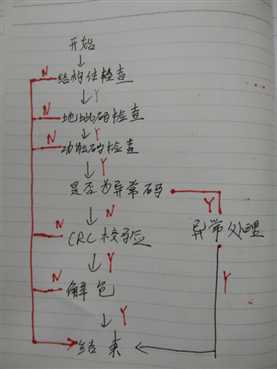 开始
N 结构体检查
Y
N 地址码检查
Y
N 功能码检查
Y
是否为异常码 Y
N
N CRC校验 异常处理
Y Y
N 解包
Y
结束